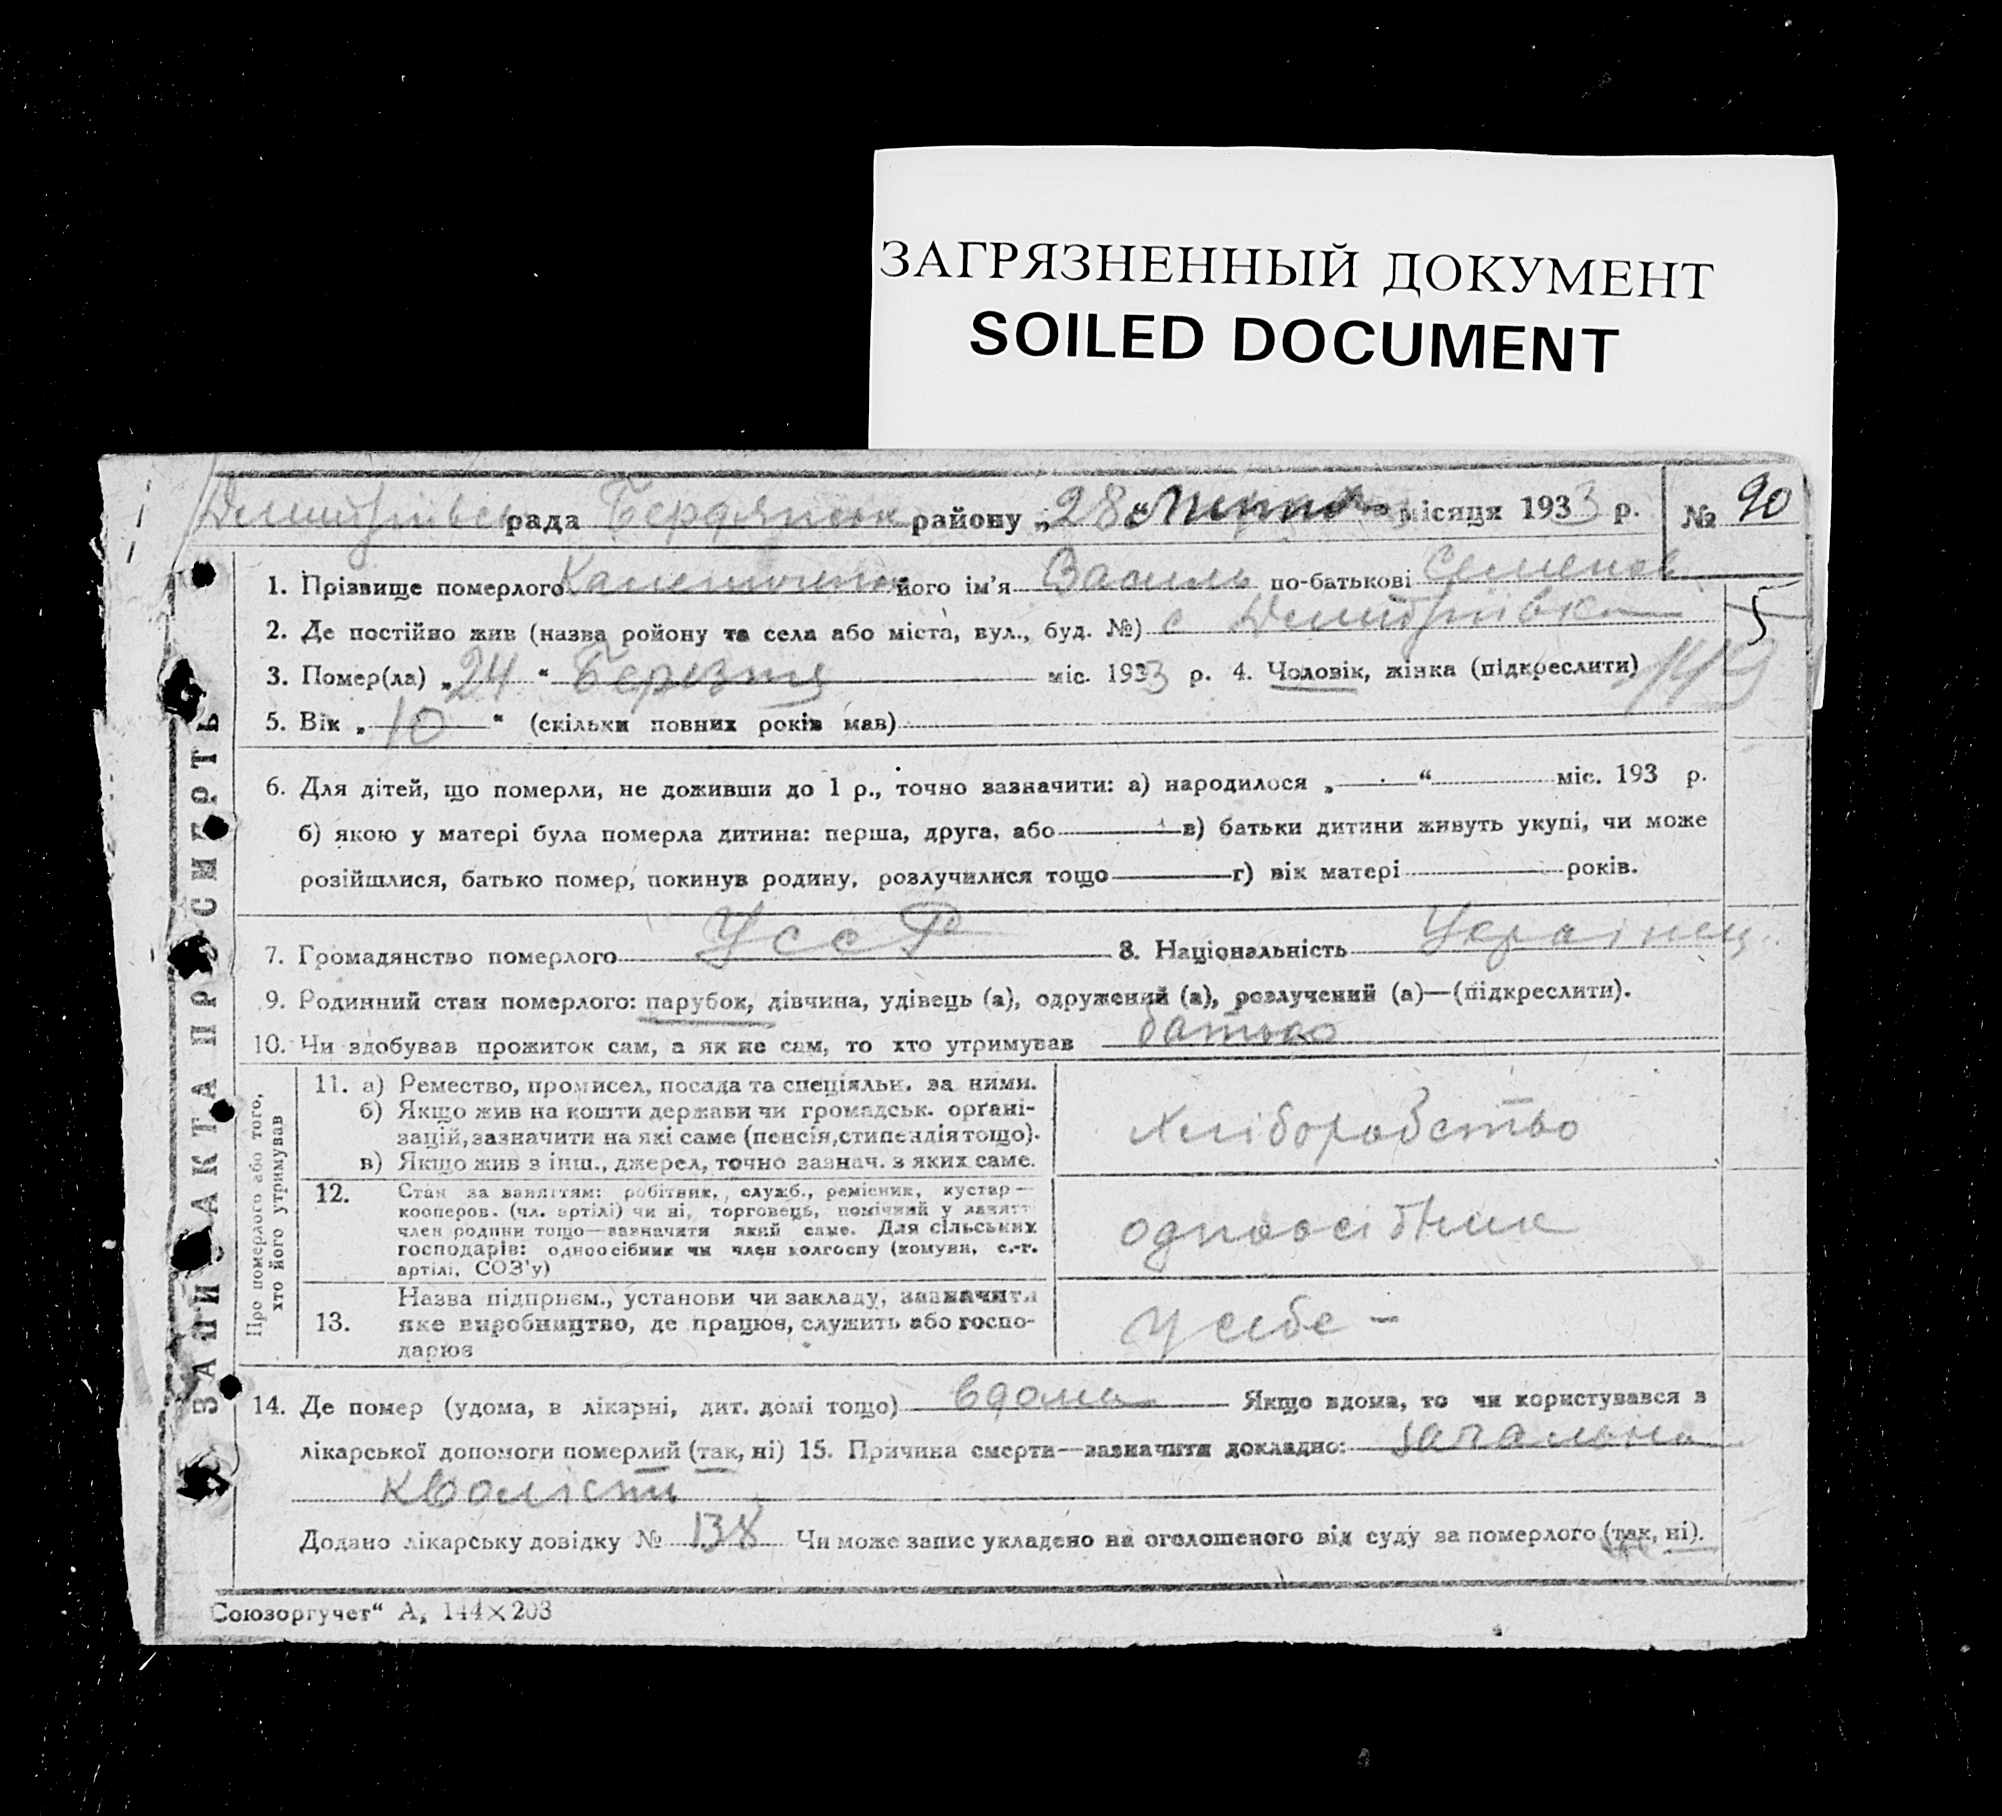 ЗАГРЯЗНЕННЫЙ ДОКУМЕНТ
SOILED DOCUMENT
Дмитрівськ рада Бердянськ району „28 “ місяця 1933 р. № 90
1. Прізвище померлого його ім'я Василь по-батькові Семенов
5
2. Де постійно жив (назва ройону та села або міста, вул., буд. №) с Дмитрівка
3. Помер(ла) „24 “ Березня міс. 1933 р. 4. Чоловік, жінка (підкреслити) 149
5. Вік „ 10 “ (скільки повних років мав)
6. Для дітей, що померли, не доживши до 1 р., точно зазначити: а) народилося „ “ міс. 193 р.
б) якою у матері була померла дитина: перша, друга, або в) батьки дитини живуть укупі, чи може
розійшлися, батько помер, покинув родину, розлучилися тощо г) вік матері років.
7. Громадянство померлого УССР 8. Національність Українец
9. Родинний стан померлого: парубок, дівчина, удівець (а), одружений (а), розлучений (а)—(підкреслити).
10. Чи здобував прожиток сам, а як не сам, то хто утримував батько
Про померлого або того,
хто його утримував
11. а) Ремество, промисел, посада та спеціяльн. за ними.
б) Якщо жив на кошти держави чи громадськ. орґані-
зацій, зазначити на які саме (пенсія, стипендія тощо).
в) Якщо жив з інш., джерел, точно зазнач. з яких саме.
хліборобство
12. Стан за заняттям: робітник, служб., ремісник, кустар—
кооперов. (чл. артілі) чи ні, торговець, помічний у занятт
член родини тощо—зазначити який саме. Для сільських
господарів: одноосібник чи член колгоспу (комуни, с.-г.
артілі, СОЗ'у)
одноосібник
13. Назва підприєм., установи чи закладу, зазначити
яке виробництво, де працює, служить або госпо-
дарює
у себе -
14. Де помер (удома, в лікарні, дит. домі тощо) вдома Якщо вдома, то чи користувався в
лікарської допомоги померлий (так, ні) 15. Причина смерти—зазначити докладно:
Додано лікарську довідку № 138 Чи може запис укладено на оголошеного від суду за померлого (так, ні).
Союзоргучет“ А, 144×203